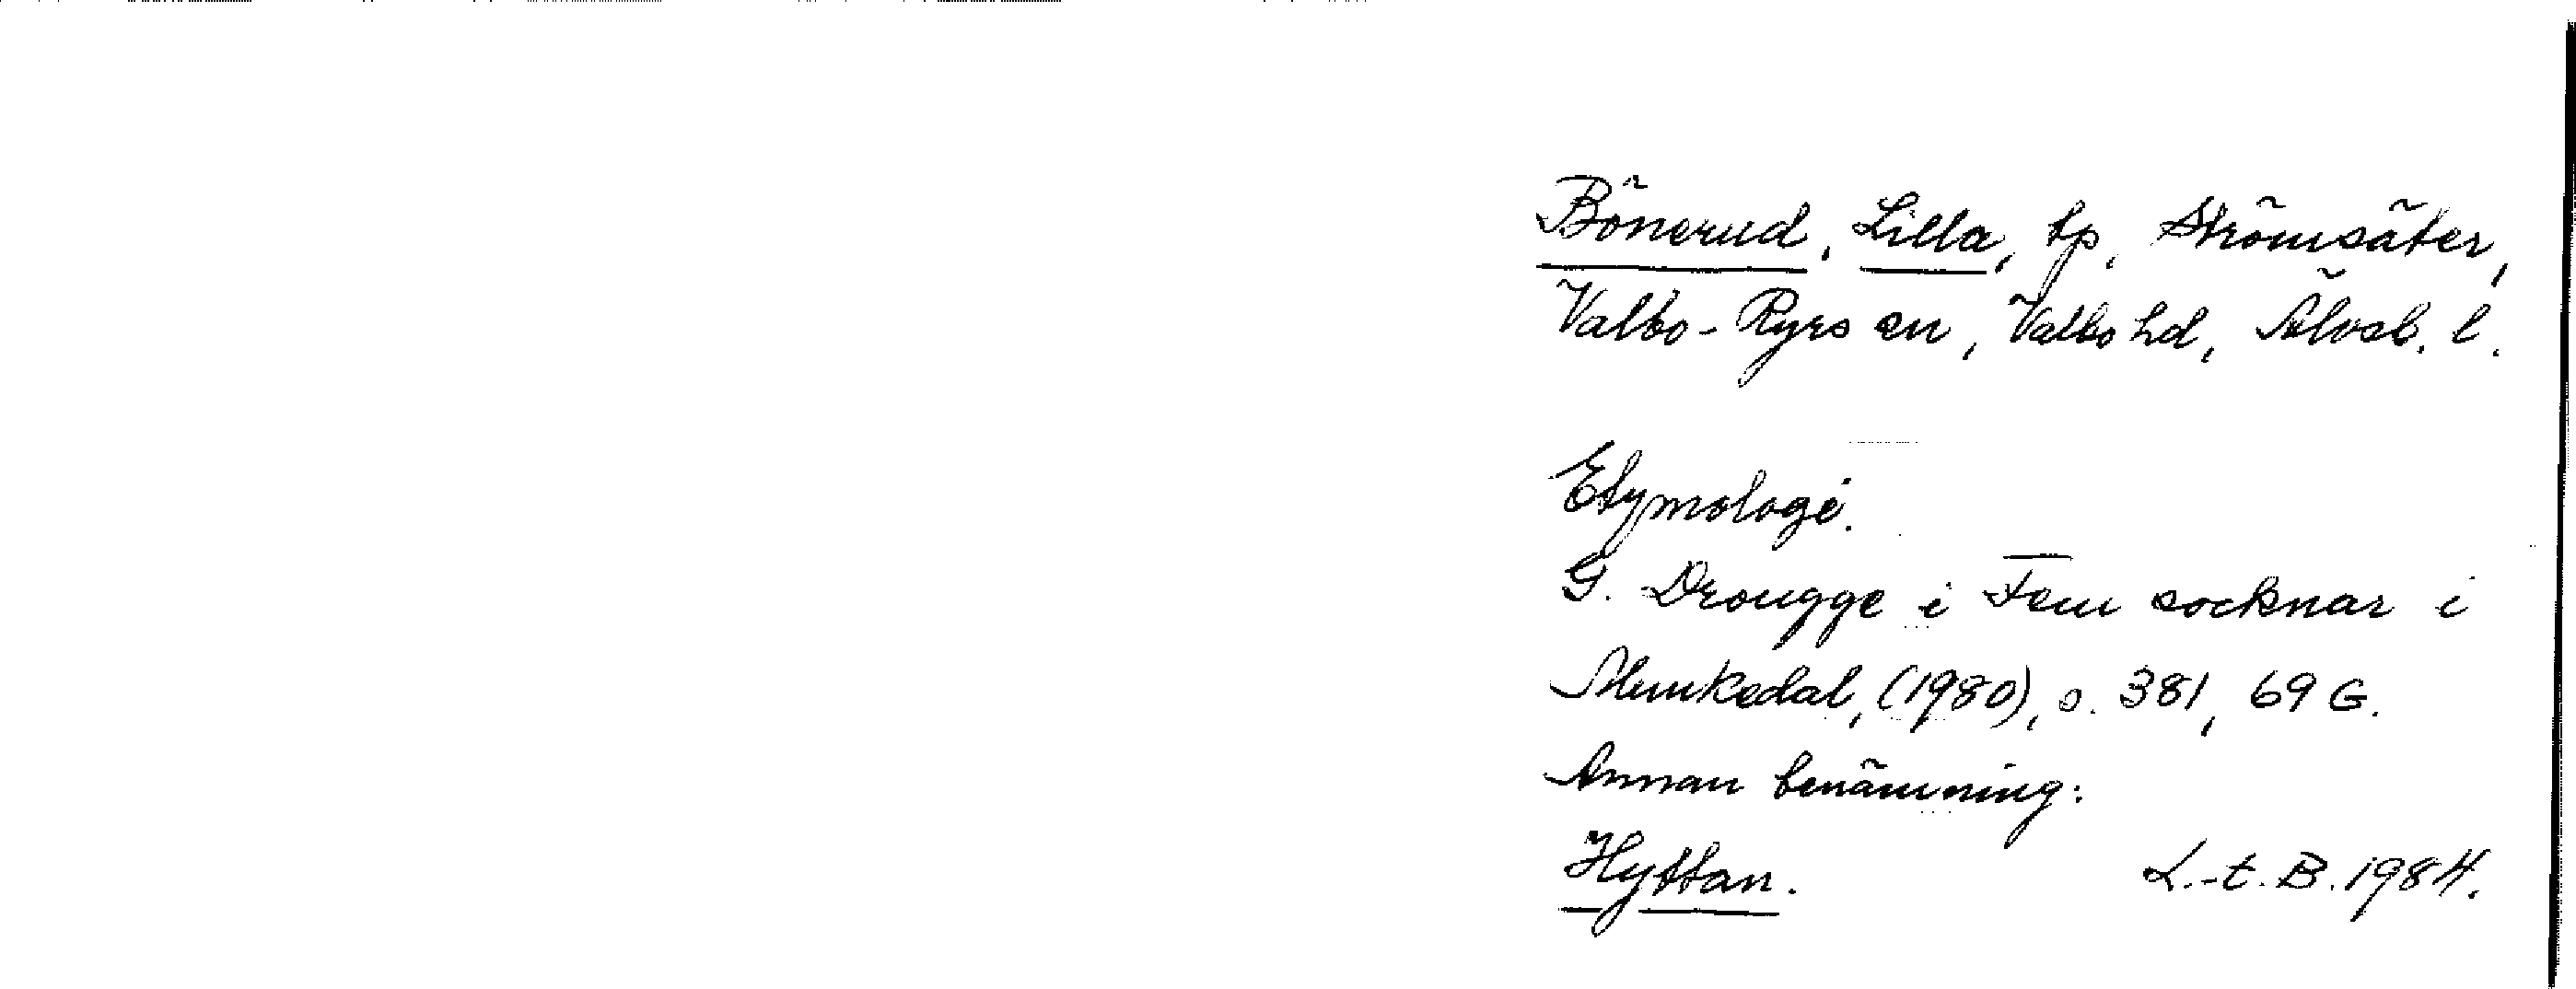 Bönerud, Lilla, tp, Strömsäter,
Valbo-Ryrs sn, Valbo hd, Älvsb. l.
Etymologi.
G. Drougge i Fem socknar i
Munkedal, (1980), s. 381, 69 G.
Annan benämning:
Hyttan. L.-t. B. 1984.